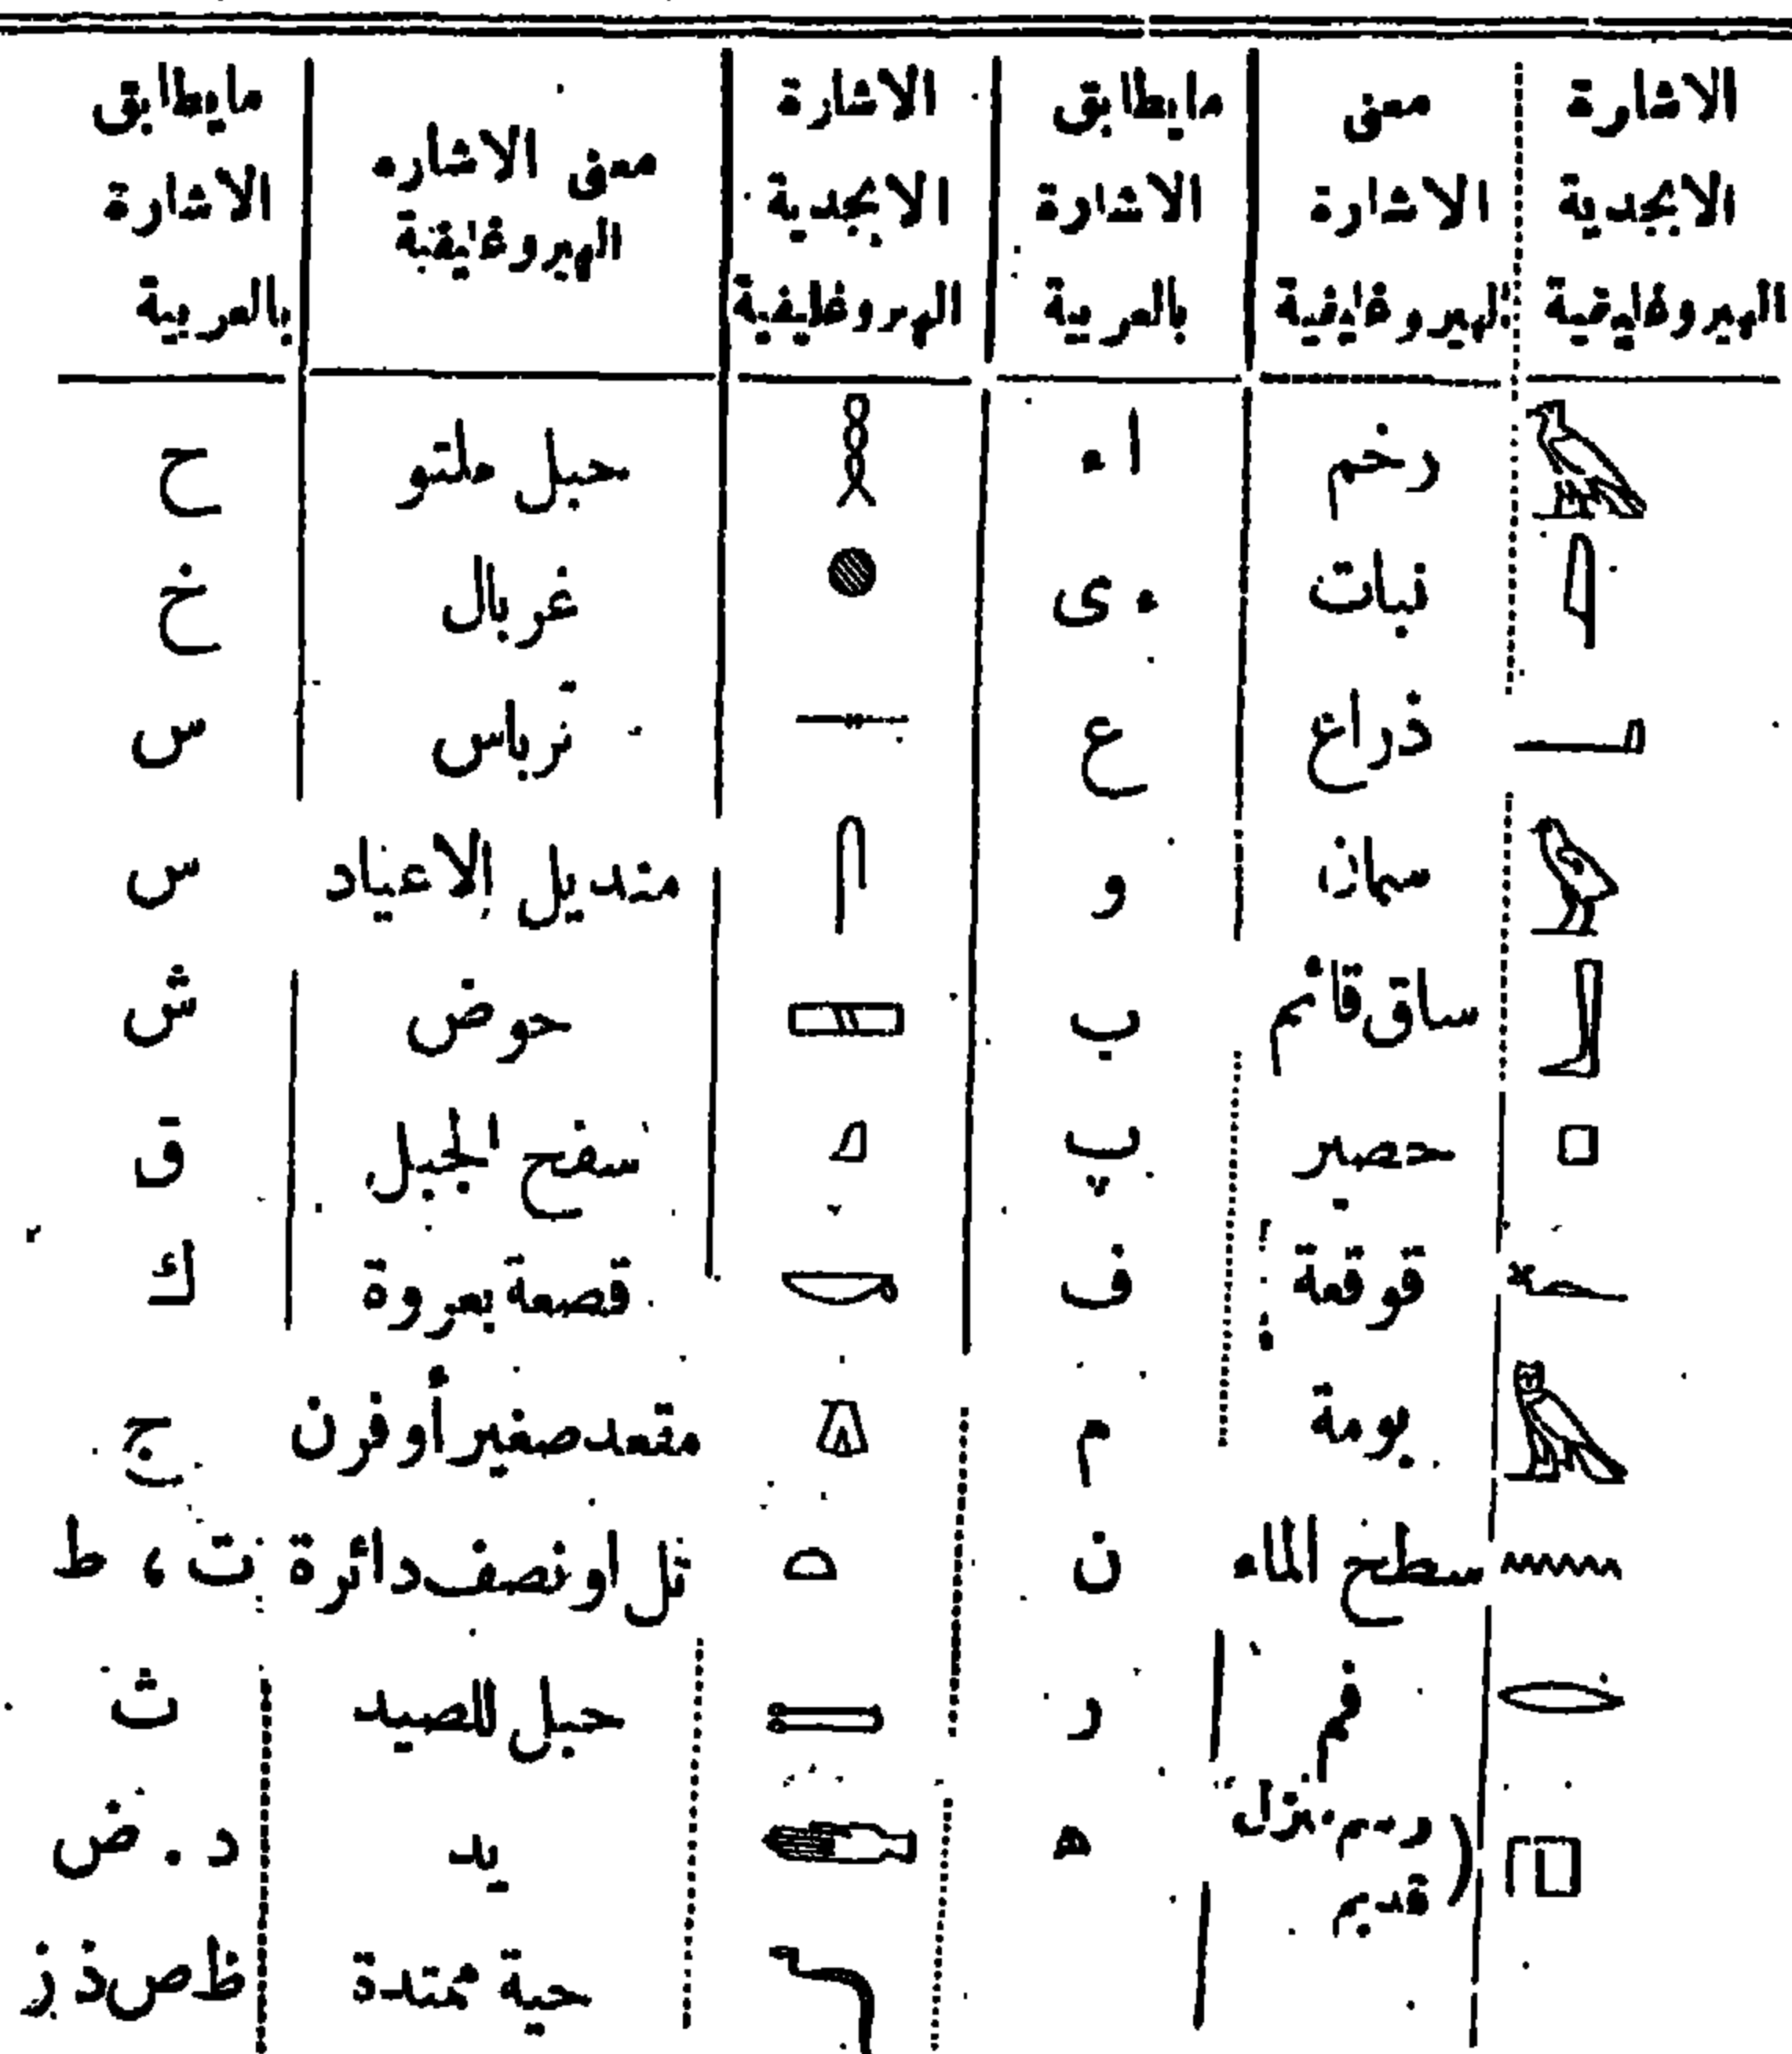 الاشارة الابجدية الهيروغليفية | معنى الاشارة الهيروغليفية | مايطابق الاشارة بالعربية | الاشارة الابجدية الهيروغليفية | معنى الاشاره الهيروغليفية | مايطابق الاشارة بالعربية
رخم | اء | حبل ملتو | ح
نبات | ء ى | غربال | خ
ذراع | ع | ترباس | س
سمان | و | منديل الاعياد | س
ساق قائم | ب | حوض | ش
حصير | پ | سفح الجبل | ق
قوقعة | ف | قصعة بعروة | ك
بومة | م | مقعد صغير أو فرن | ج
سطح الماء | ن | تل او نصف دائرة | ت ، ط
فم | ر | حبل للصيد | ث
(رسم منزل قديم | ه | يد | د . ض
حية ممتدة | ظ ص ذ ز